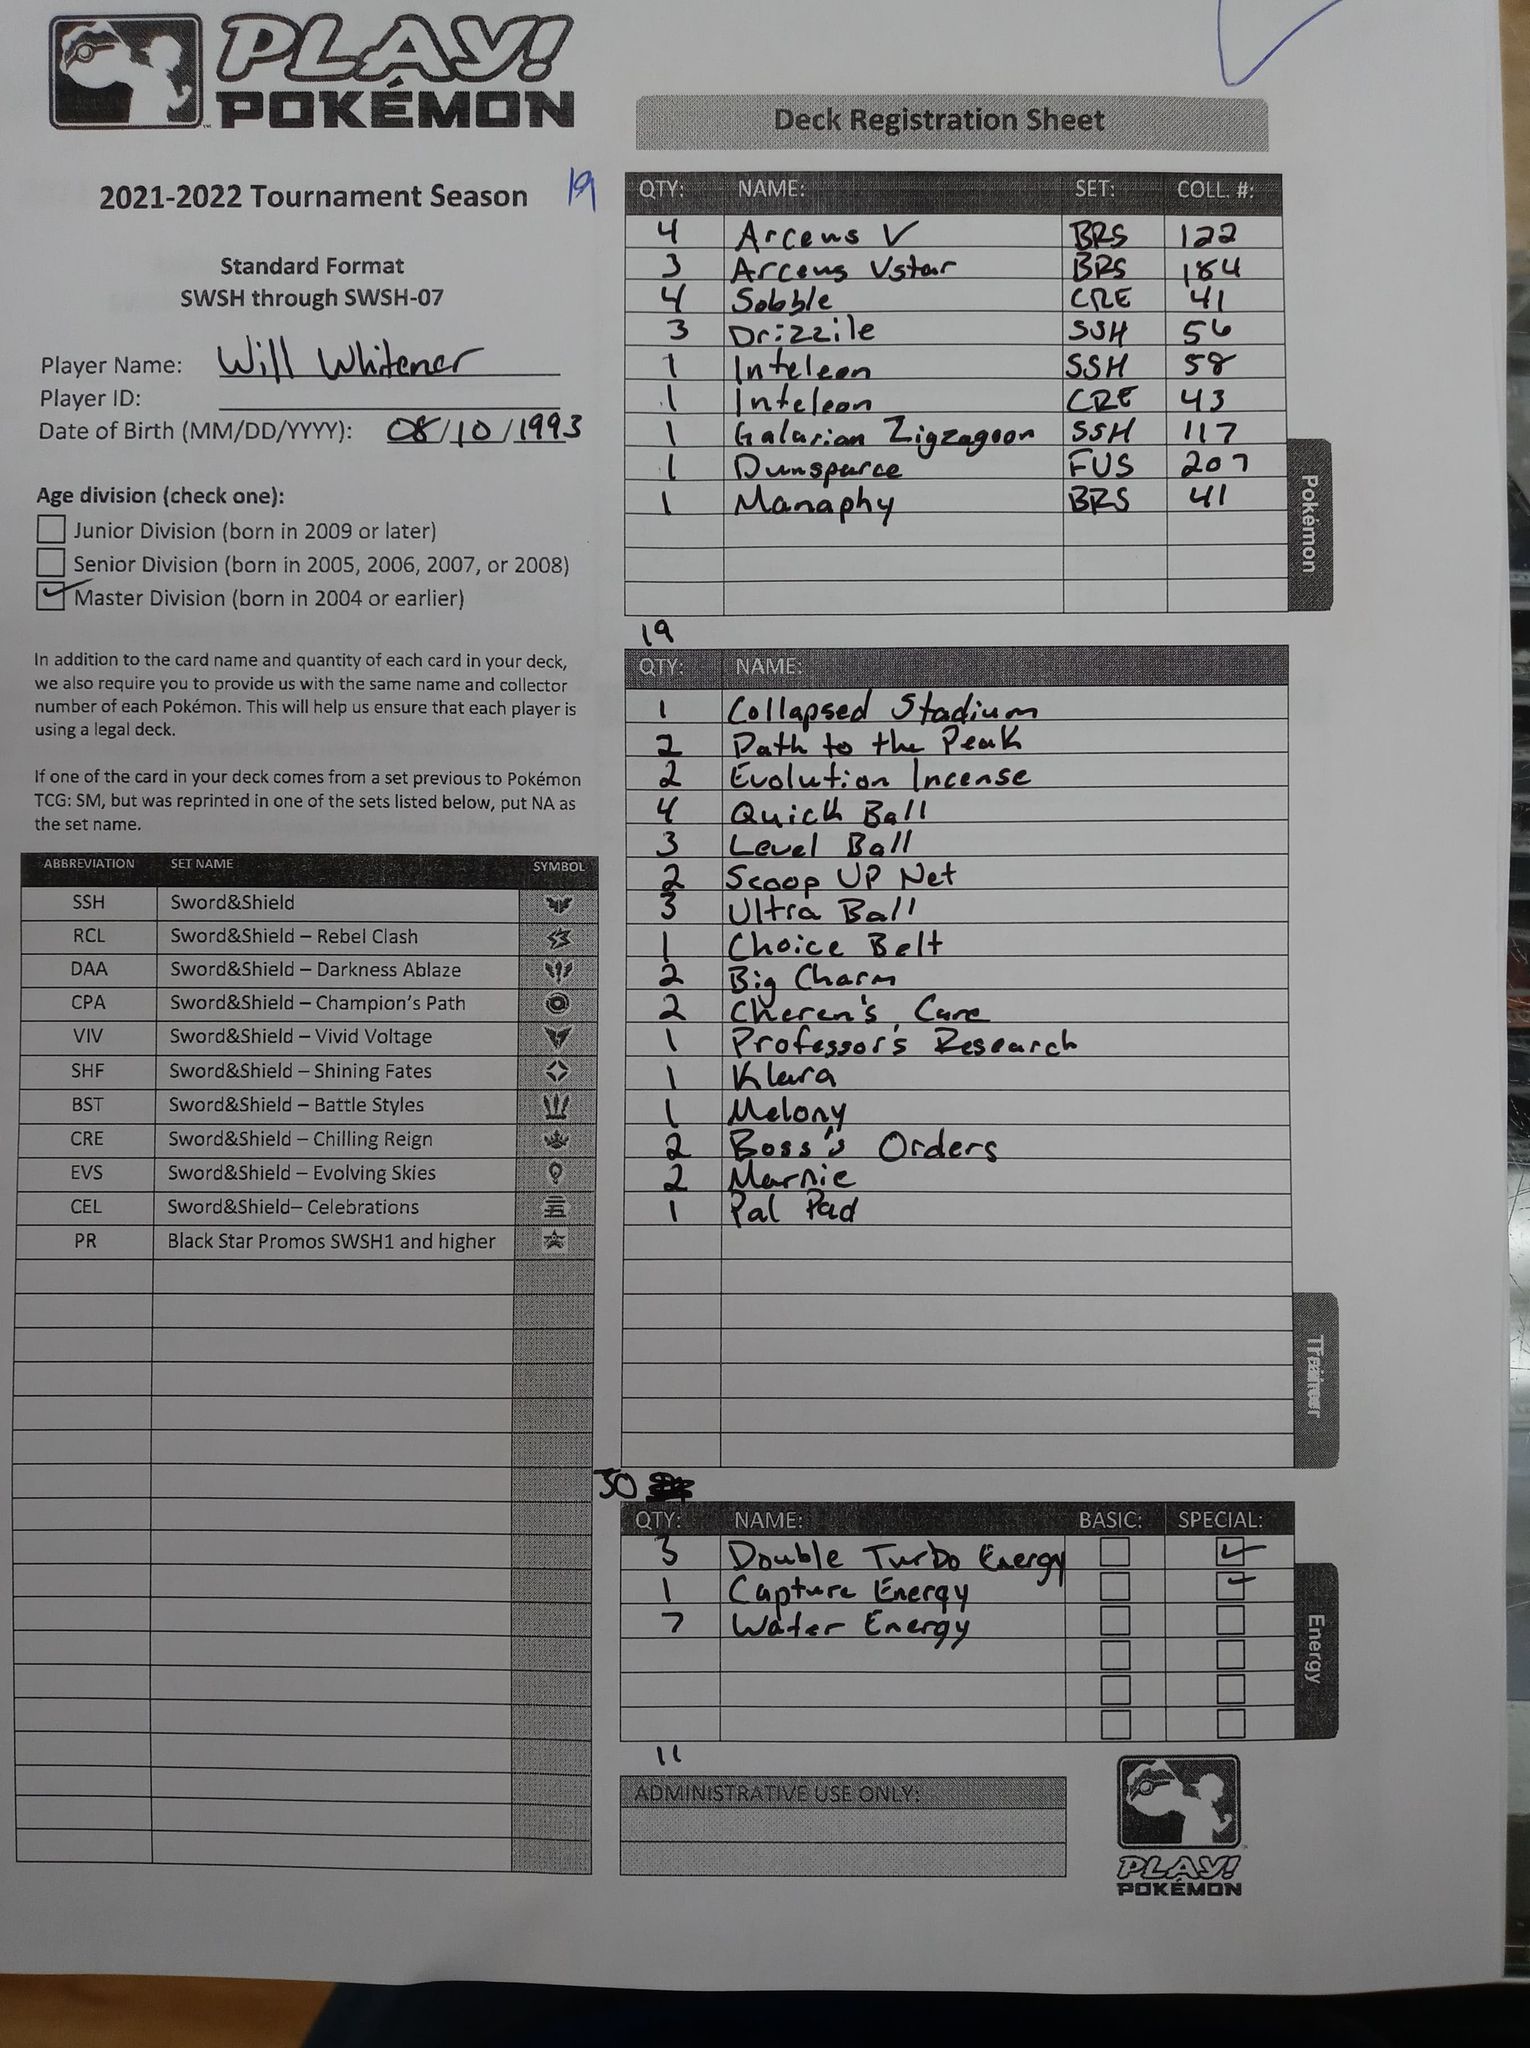 PLAY!
POKÉMON
Deck Registration Sheet
2021-2022 Tournament Season 19
Standard Format
SWSH through SWSH-07
Player Name: Will Whitener
Player ID:
Date of Birth (MM/DD/YYYY): 08/10/1993
Age division (check one):
Junior Division (born in 2009 or later)
Senior Division (born in 2005, 2006, 2007, or 2008)
Master Division (born in 2004 or earlier)
In addition to the card name and quantity of each card in your deck,
we also require you to provide us with the same name and collector
number of each Pokémon. This will help us ensure that each player is
using a legal deck.
If one of the card in your deck comes from a set previous to Pokémon
TCG: SM, but was reprinted in one of the sets listed below, put NA as
the set name.
ABBREVIATION SET NAME SYMBOL
SSH Sword&Shield
RCL Sword&Shield – Rebel Clash
DAA Sword&Shield – Darkness Ablaze
CPA Sword&Shield – Champion's Path
VIV Sword&Shield – Vivid Voltage
SHF Sword&Shield – Shining Fates
BST Sword&Shield – Battle Styles
CRE Sword&Shield – Chilling Reign
EVS Sword&Shield – Evolving Skies
CEL Sword&Shield– Celebrations
PR Black Star Promos SWSH1 and higher
QTY: NAME: SET: COLL. #:
4 Arceus V BRS 122
3 Arceus Vstar BRS 184
4 Sobble CRE 41
3 Drizzile SSH 56
1 Inteleon SSH 58
1 Inteleon CRE 43
1 Galarian Zigzagoon SSH 117
1 Dunsparce FUS 207
1 Manaphy BRS 41
Pokémon
19
QTY: NAME:
1 Collapsed Stadium
2 Path to the Peak
2 Evolution Incense
4 Quick Ball
3 Level Ball
2 Scoop UP Net
3 Ultra Ball
1 Choice Belt
2 Big Charm
2 Cheren's Care
1 Professor's Research
1 Klara
1 Melony
2 Boss's Orders
2 Marnie
1 Pal Pad
30
QTY: NAME: BASIC: SPECIAL:
3 Double Turbo Energy
1 Capture Energy
7 Water Energy
Energy
11
ADMINISTRATIVE USE ONLY:
PLAY!
POKÉMON